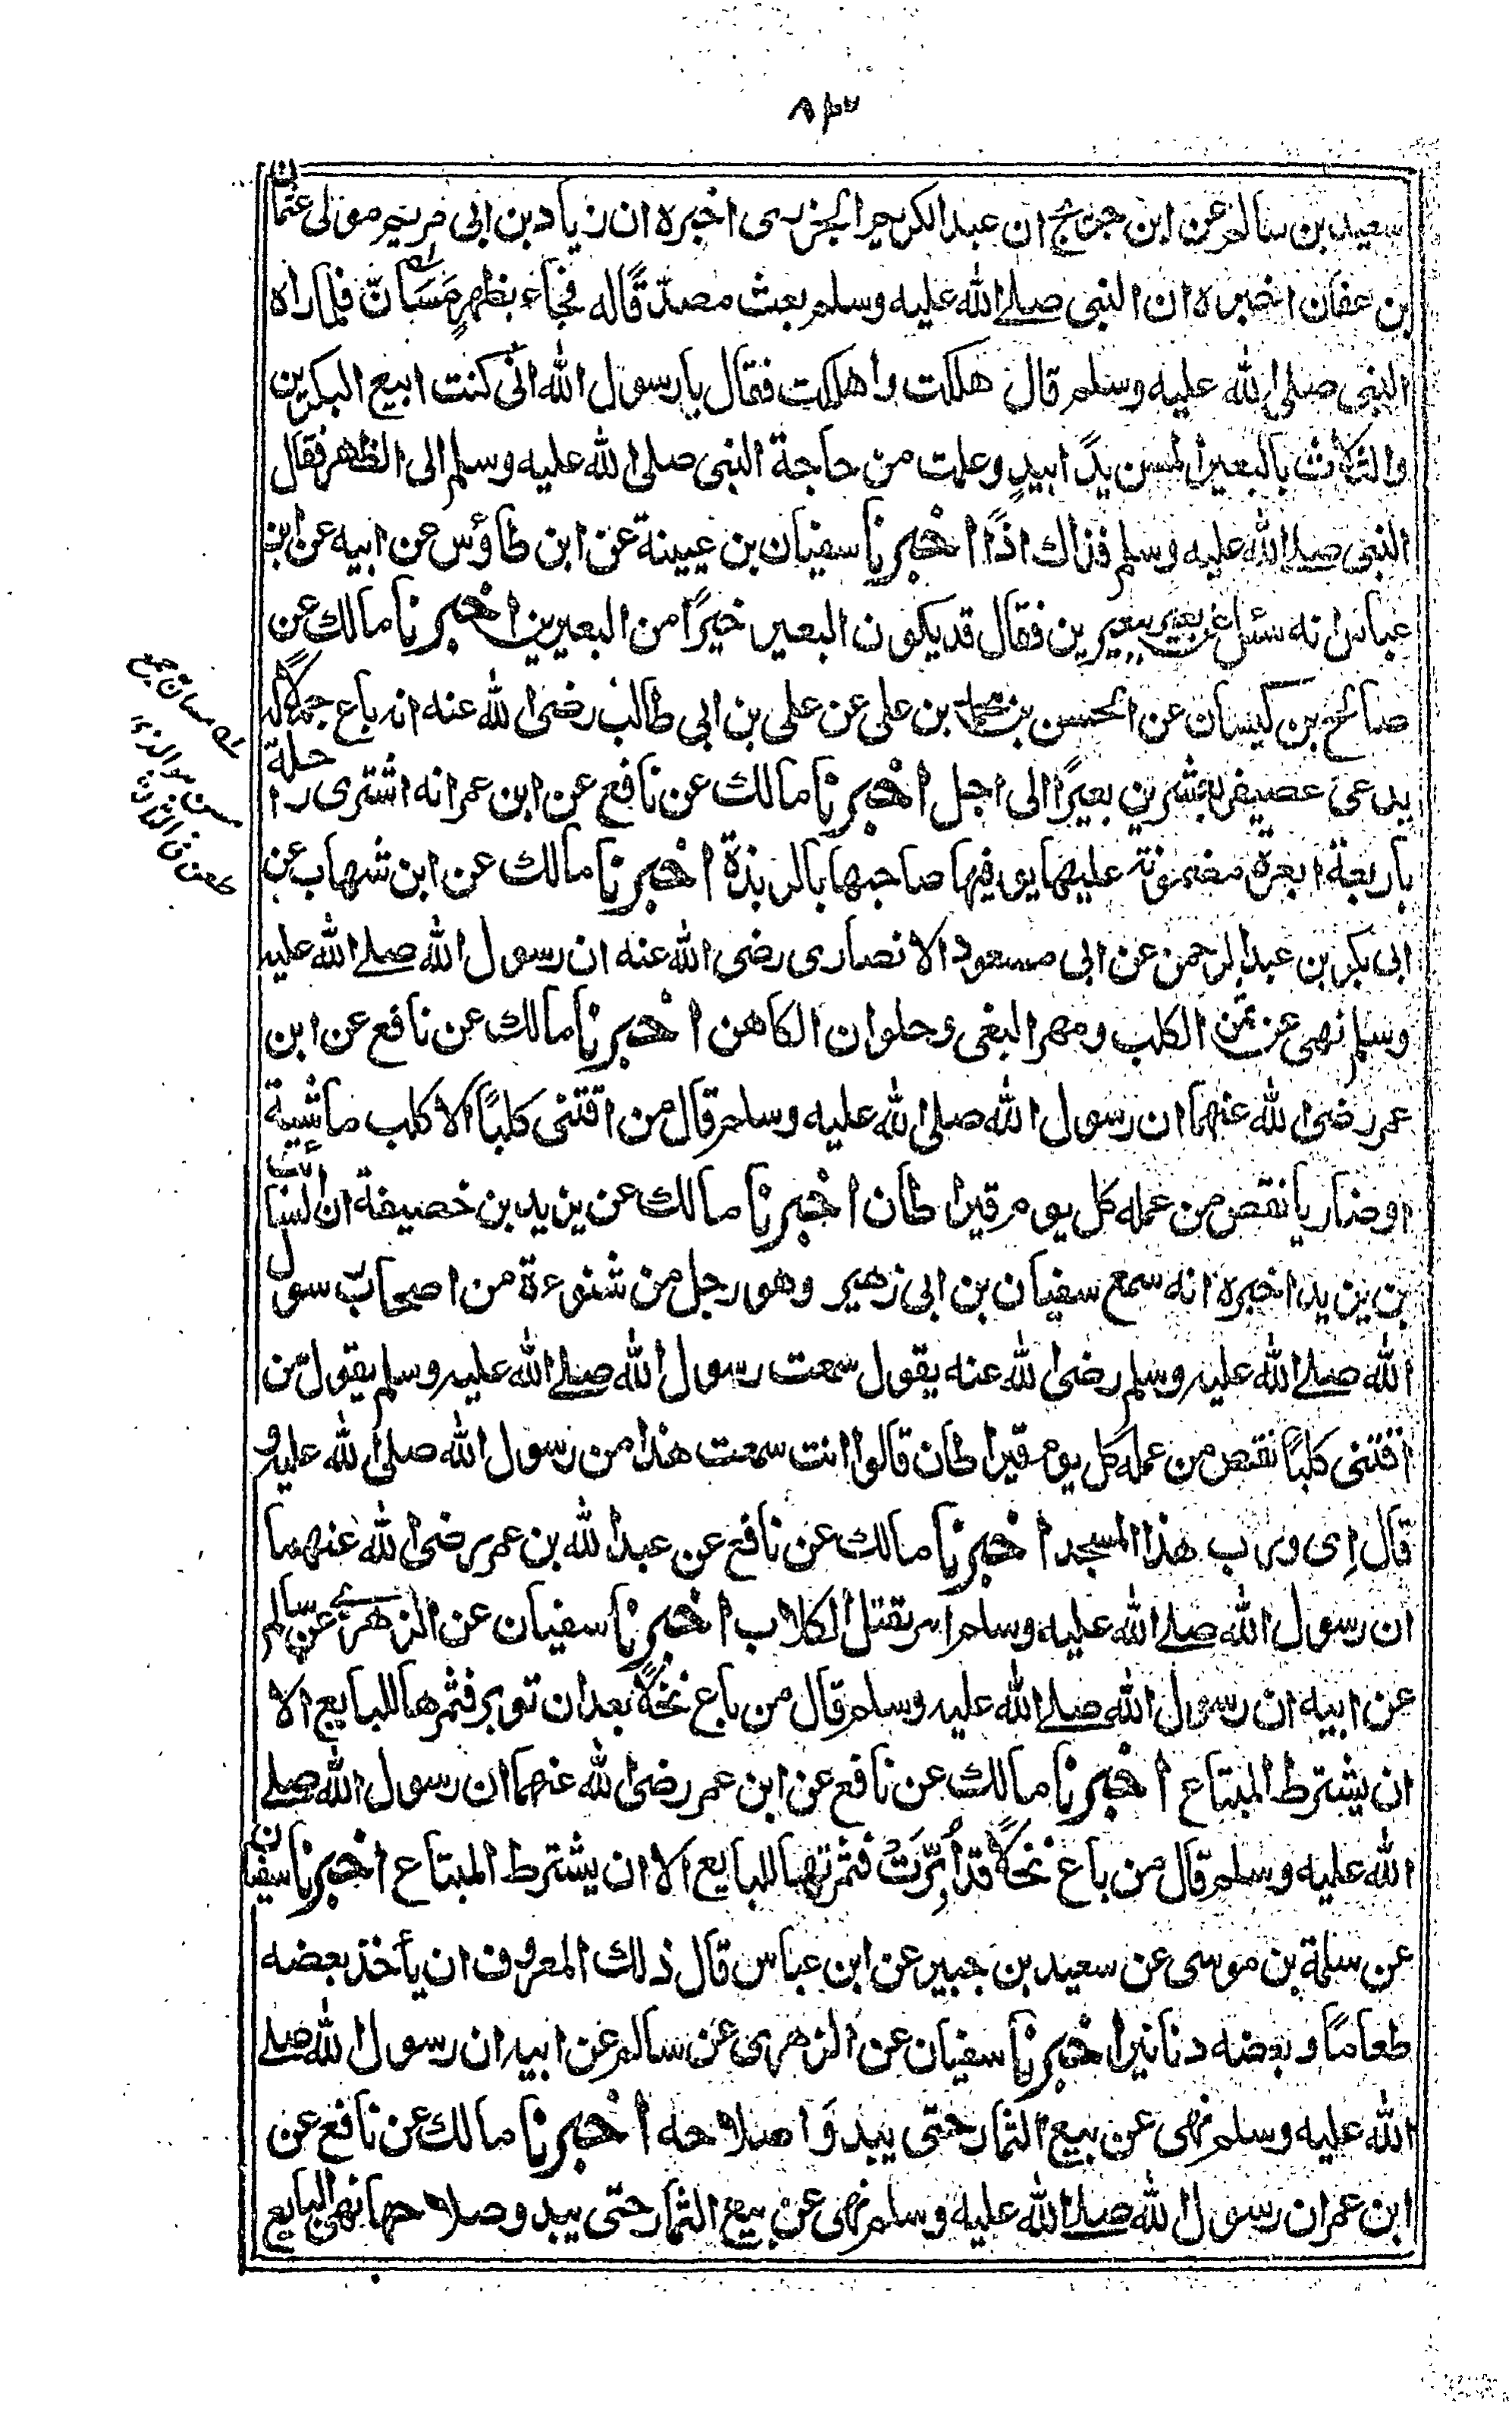 سعيد بن سالم عن ابن جريج ان عبد الكريم الجزرى اخبره ان زياد بن ابى مريم مولى عثمان
بن عفان اخبره ان النبى صلى الله عليه وسلم بعث مصدّقًا له فجاء بظهرٍ مَسَانّ فلما راه
النبى صلى الله عليه وسلم قال هلكت واهلكت فقال يا رسول الله انّى كنت ابيع البكرين
والثلاث بالبعير المسن يدًا بيدٍ وعلمت من حاجة النبى صلى الله عليه وسلم الى الظهر فقال
النبى صلى الله عليه وسلم فذاك اذًا اخبرنا سفيان بن عيينة عن ابن طاؤس عن ابيه عن ابن
عباس انه سئل عن بعير ببعيرين فقال قد يكون البعير خيرًا من البعيرين اخبرنا مالك عن
صالح بن كيسان عن الحسن بن محمد بن على عن على بن ابى طالب رضى الله عنه انه باع جملًا له
يدعى عصيفر بعشرين بعيرًا الى اجل اخبرنا مالك عن نافع عن ابن عمر انه اشترى راحلة
باربعة ابعرة مضمونة عليها يوفيها صاحبها بالربذة اخبرنا مالك عن ابن شهاب عن
ابى بكر بن عبد الرحمن عن ابى مسعود الانصارى رضى الله عنه ان رسول الله صلى الله عليه
وسلم نهى عن ثمن الكلب ومهر البغى وحلوان الكاهن اخبرنا مالك عن نافع عن ابن
عمر رضى الله عنهما ان رسول الله صلى الله عليه وسلم قال من اقتنى كلبًا الا كلب ماشية
او ضاريا نقص من عمله كل يوم قيراطان اخبرنا مالك عن يزيد بن خصيفة ان السائب
بن يزيد اخبره انه سمع سفيان بن ابى زهير وهو رجل من شنوءة من اصحاب رسول
الله صلى الله عليه وسلم رضى الله عنه يقول سمعت رسول الله صلى الله عليه وسلم يقول من
اقتنى كلبًا نقص من عمله كل يوم قيراطان قالوا انت سمعت هذا من رسول الله صلى الله عليه و
قال اِى ورب هذا المسجد اخبرنا مالك عن نافع عن عبد الله بن عمر رضى الله عنهما
ان رسول الله صلى الله عليه وسلم امر بقتل الكلاب اخبرنا سفيان عن الزهرى عن سالم
عن ابيه ان رسول الله صلى الله عليه وسلم قال من باع نخلًا بعد ان توبر فثمرها للبايع الا
ان يشترط المبتاع اخبرنا مالك عن نافع عن ابن عمر رضى الله عنهما ان رسول الله صلى
الله عليه وسلم قال من باع نخلًا قد اُبِّرَتْ فثمرتها للبايع الا ان يشترط المبتاع اخبرنا سفيان
عن سلمة بن موسى عن سعيد بن جبير عن ابن عباس قال ذلك المعروف ان يأخذ بعضه
طعامًا وبعضه دنانير اخبرنا سفيان عن الزهرى عن سالم عن ابيه ان رسول الله صلى
الله عليه وسلم نهى عن بيع الثمار حتى يبدوَا صلاحه اخبرنا مالك عن نافع عن
ابن عمر ان رسول الله صلى الله عليه وسلم نهى عن بيع الثمار حتى يبدو صلاحها نهى البايع
مسان جمع
مسن هو الذى